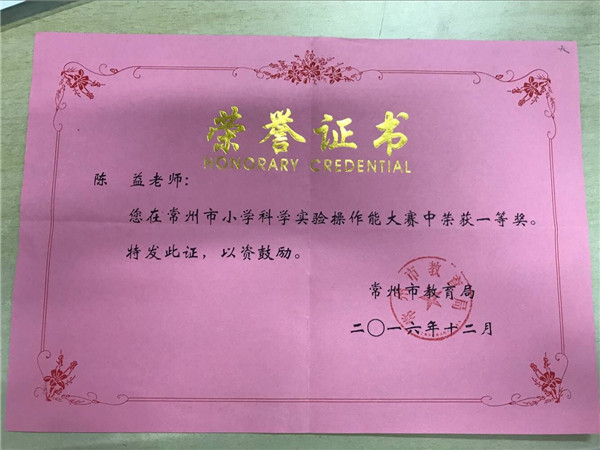 荣誉证书
HONORARY CREDENTIAL
陈 益老师：
您在常州市小学科学实验操作能大赛中荣获一等奖。
特发此证，以资鼓励。
常州市教育局
二〇一六年十二月